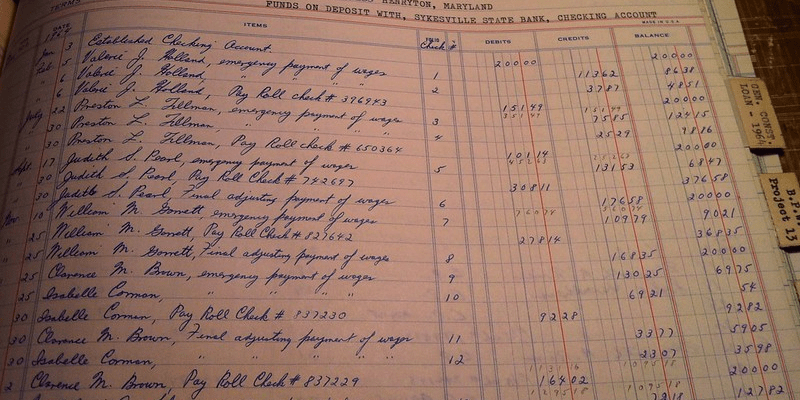 TERMS
HENRYTON, MARYLAND
FUNDS ON DEPOSIT WITH, SYKESVILLE STATE BANK, CHECKING ACCOUNT
MADE IN U.S.A.
DATE 1964 ITEMS Check # DEBITS CREDITS BALANCE
Jan. 3 Established Checking Account 20000 20000
Feb. 5 Valerie J. Holland, emergency payment of wages 1 11362 8638
" 6 Valerie J. Holland, " " " 2 3787 4851
" 6 Valerie J. Holland, Pay Roll check # 376943 15149 20000
July 22 Preston L. Tillman, emergency payment of wages 3 7585 12415
" 30 Preston L. Tillman, " " " 4 2529 9886
" 30 Preston L. Tillman, Pay Roll check # 650364 10114 20000
Sept. 17 Judith S. Pearl, emergency payment of wages 5 13153 6847
30 Judith S. Pearl, Pay Roll Check # 742697 30811 37658
30 Judith S. Pearl, Final adjusting payment of wages 6 17658 20000
Nov. 10 William M. Garrett, emergency payment of wages 7 10979 9021
" 25 William M. Garrett, Pay Roll Check # 827642 27814 36835
" 25 William M. Garrett, Final adjusting payment of wages 8 16835 20000
Clarence M. Brown, emergency payment of wages 9 13025 6975
25 Isabelle Corman, " " " 10 6921 54
30 Isabelle Corman, Pay Roll Check # 837230 9228 9282
30 Clarence M. Brown, Final adjusting payment of wages 11 3377 5905
30 Isabelle Corman, " " " " 12 2307 3598
2 Clarence M. Brown, Pay Roll Check # 837229 16402 20000
7218 12782
GEN. CONST.
LOAN - 1964
B.P.
Project 13